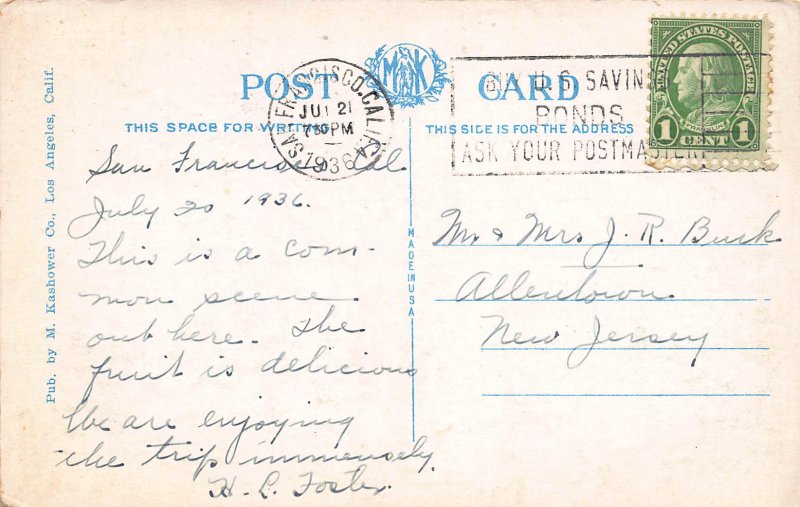 POST CARD
THIS SPACE FOR WRITING
THIS SIDE IS FOR THE ADDRESS
M K
Pub. by M. Kashower Co., Los Angeles, Calif.
MADE IN USA
SAN FRANCISCO, CALIF.
JUL 21
7 30 PM
1936
BUY U.S. SAVINGS
BONDS
ASK YOUR POSTMASTER
UNITED STATES POSTAGE
FRANKLIN
1 CENT 1
San Francisco Cal
July 20 1936.
This is a com-
mon scene
out here. The
fruit is delicious
We are enjoying
the trip immensely.
H. L. Foster
Mr & Mrs J. R. Busk
Allentown
New Jersey